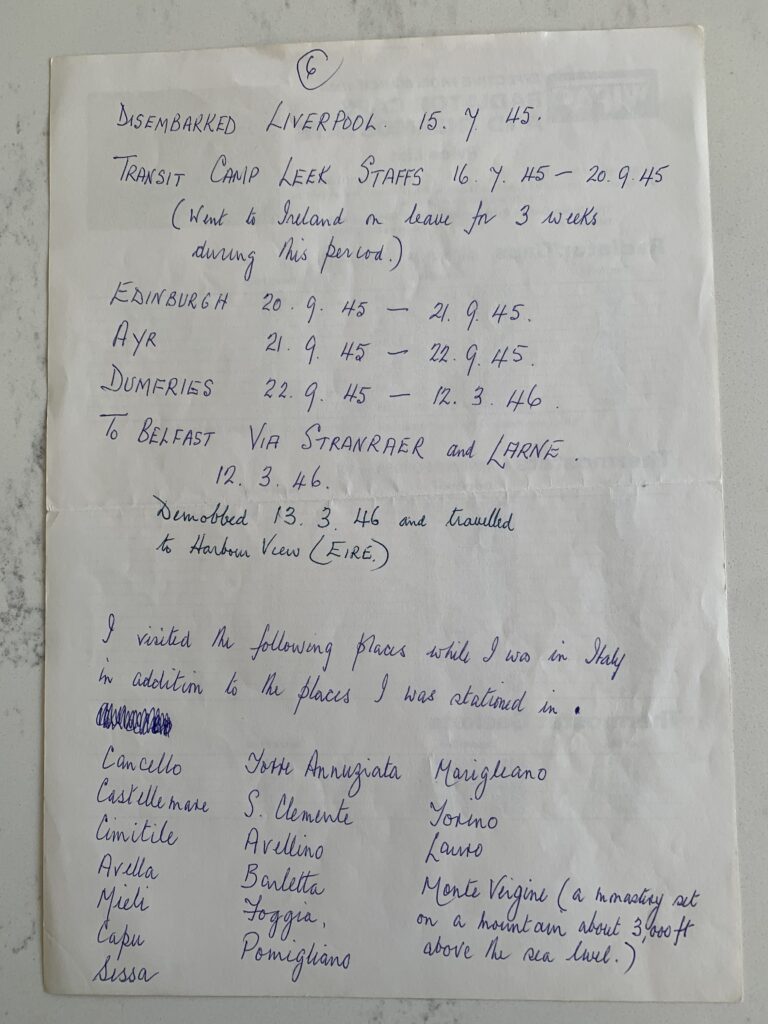 6
DISEMBARKED LIVERPOOL. 15. 7 45.
TRANSIT CAMP LEEK STAFFS 16. 7. 45 – 20. 9. 45
(Went to Ireland on leave for 3 weeks
during this period.)
EDINBURGH 20. 9. 45 – 21. 9. 45.
AYR 21. 9. 45 – 22. 9. 45.
DUMFRIES 22. 9. 45 – 12. 3. 46.
TO BELFAST VIA STRANRAER and LARNE.
12. 3. 46.
Demobbed 13. 3. 46 and travelled
to Harbour View (EIRE.)
I visited the following places while I was in Italy
in addition to the places I was stationed in.
Cancello Torre Annuziata Marigliano
Castellemare S. Clemente Torino
Cimitile Avellino Lauro
Avella Barletta Monte Vergine (a monastery set
Mieli Foggia, on a mountain about 3,000ft
Capu Pomigliano above the sea level.)
Sessa